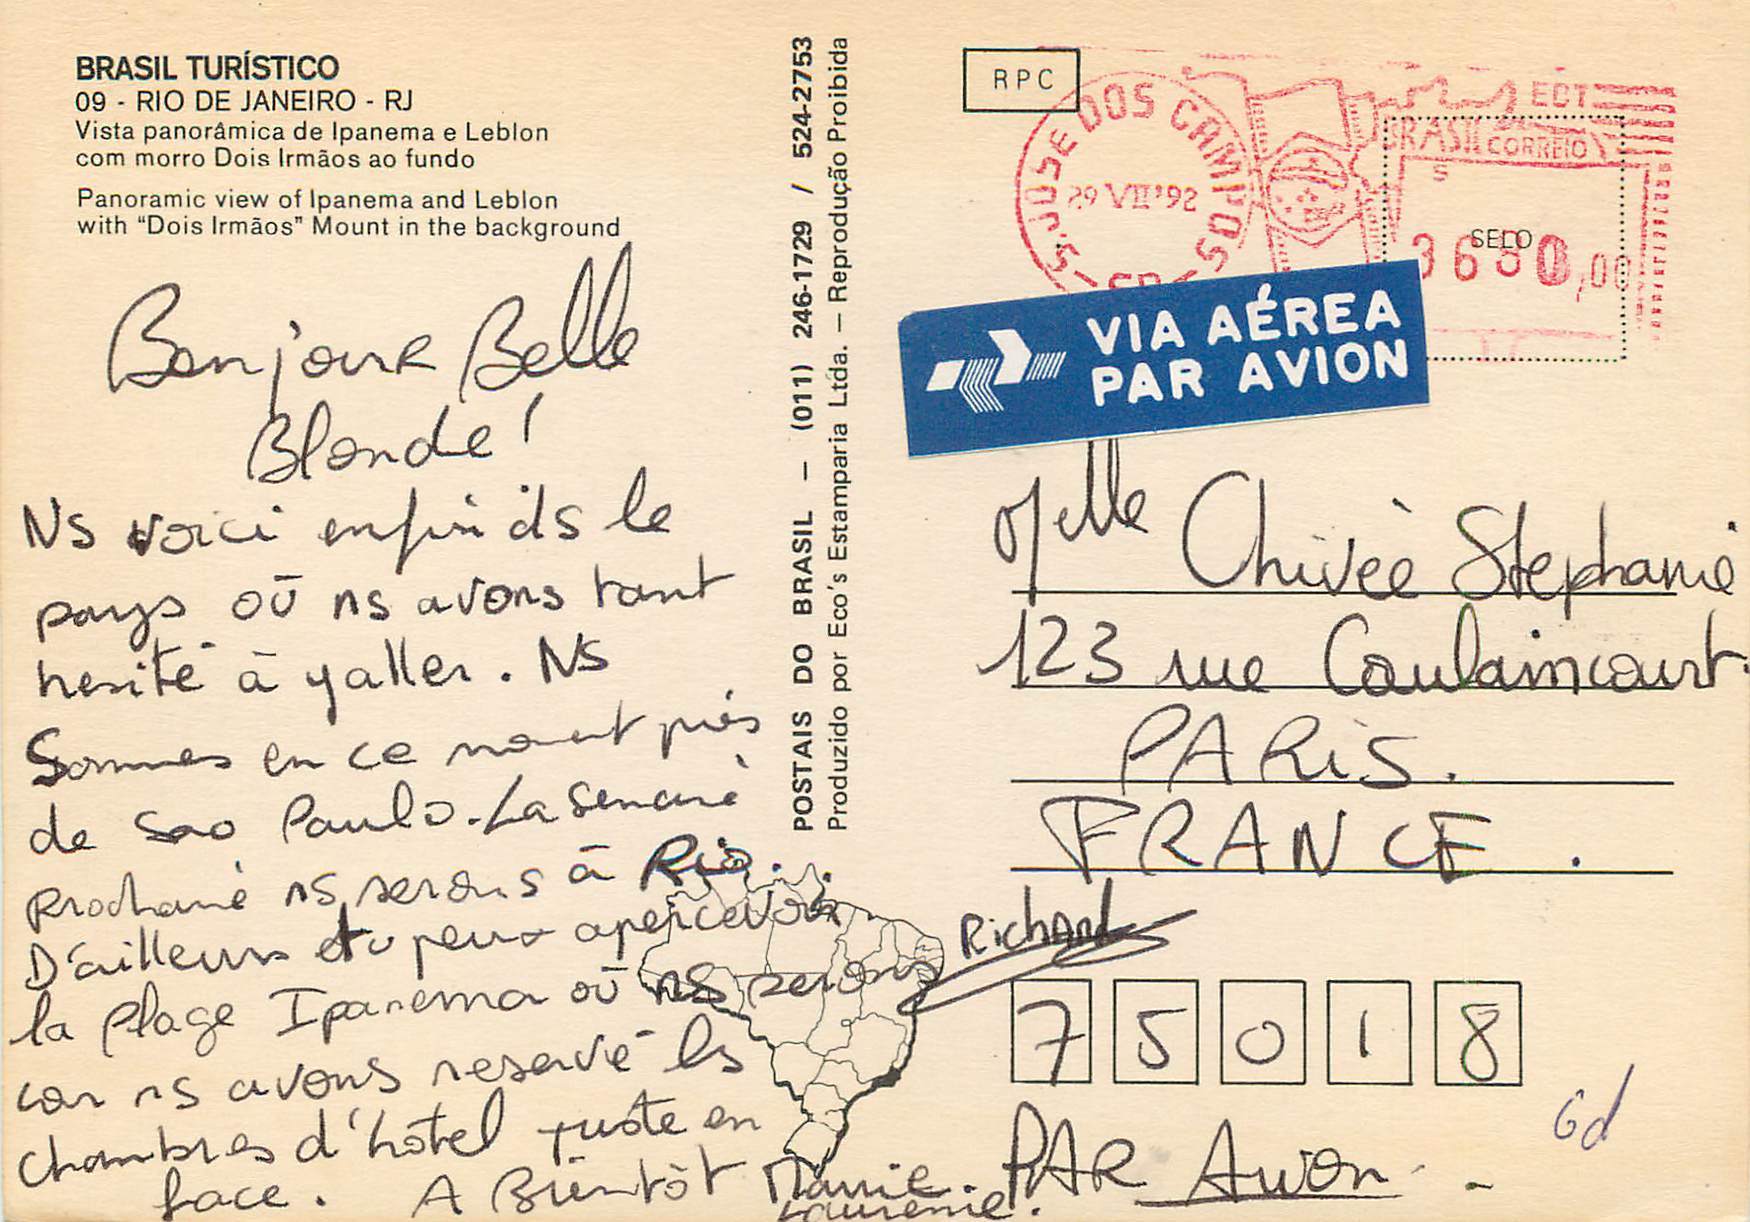 BRASIL TURÍSTICO
09 - RIO DE JANEIRO - RJ
Vista panorâmica de Ipanema e Leblon
com morro Dois Irmãos ao fundo
Panoramic view of Ipanema and Leblon
with "Dois Irmãos" Mount in the background
Bonjour Belle
Blonde !
Ns voici enfin ds le
pays où ns avons tant
hesité à y aller. Ns
Sommes en ce moment près
de Sao Paulo. La semaine
Prochaine ns serons à Rio.
D'ailleurs tu peux apercevoir
la Plage Ipanema où ns serons
car ns avons reservé les
chambres d'hôtel juste en
face. A Bientôt Marrie.
Laurence.
Richard
POSTAIS DO BRASIL – (011) 246-1729 / 524-2753
Produzido por Eco's Estamparia Ltda. – Reprodução Proibida
RPC
S. JOSE DOS CAMPOS
29 VII '92
ECT
BRASIL CORREIO
SELO
VIA AÉREA
PAR AVION
Melle Chivée Stephanie
123 rue Caulaincourt.
PARIS.
FRANCE.
75018
Gd
PAR Avion.